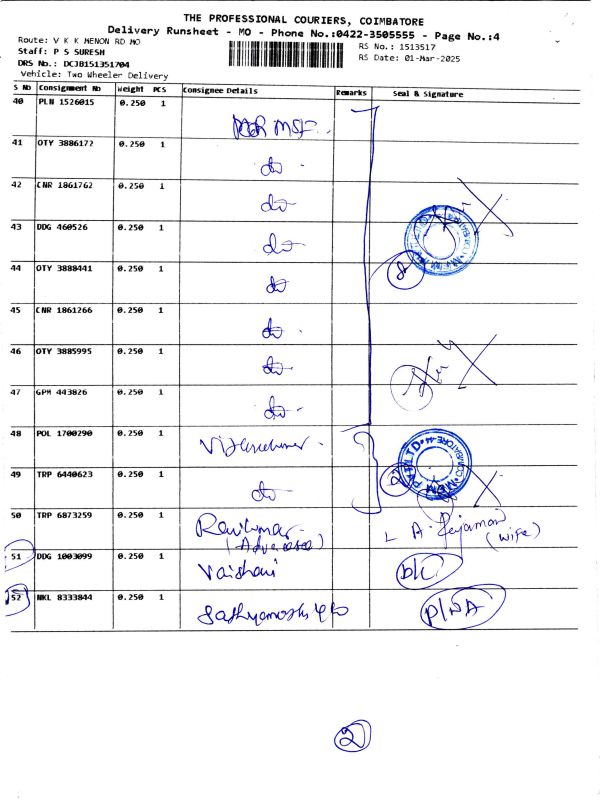 THE PROFESSIONAL COURIERS, COIMBATORE
Delivery Runsheet - MO - Phone No.:0422-3505555 - Page No.:4
Route: V K K MENON RD MO
RS No.: 1513517
Staff: P S SURESH
RS Date: 01-Mar-2025
DRS No.: DCJB151351704
Vehicle: Two Wheeler Delivery
S No Consignment No Weight PCS Consignee Details Remarks Seal & Signature
40 PLN 1526015 0.250 1
MSF
41 OTY 3886172 0.250 1
do
42 CNR 1861762 0.250 1
do
43 DDG 460526 0.250 1
do
44 OTY 3888441 0.250 1
do
8
45 CNR 1861266 0.250 1
do
46 OTY 3885995 0.250 1
do
47 GPM 443826 0.250 1
do
48 POL 1700290 0.250 1
49 TRP 6440623 0.250 1
do
2
50 TRP 6873259 0.250 1
Ravikumar
(wife)
51 DDG 1003099 0.250 1
Vaishnavi
D/L
52 NKL 8333844 0.250 1
P/NA
2